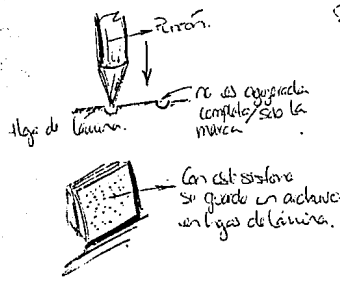 Punzón.
no es agujerada
completa/solo la
marca.
Hoja de lámina.
Con este sistema
se guarda un archivo
en hojas de lámina.